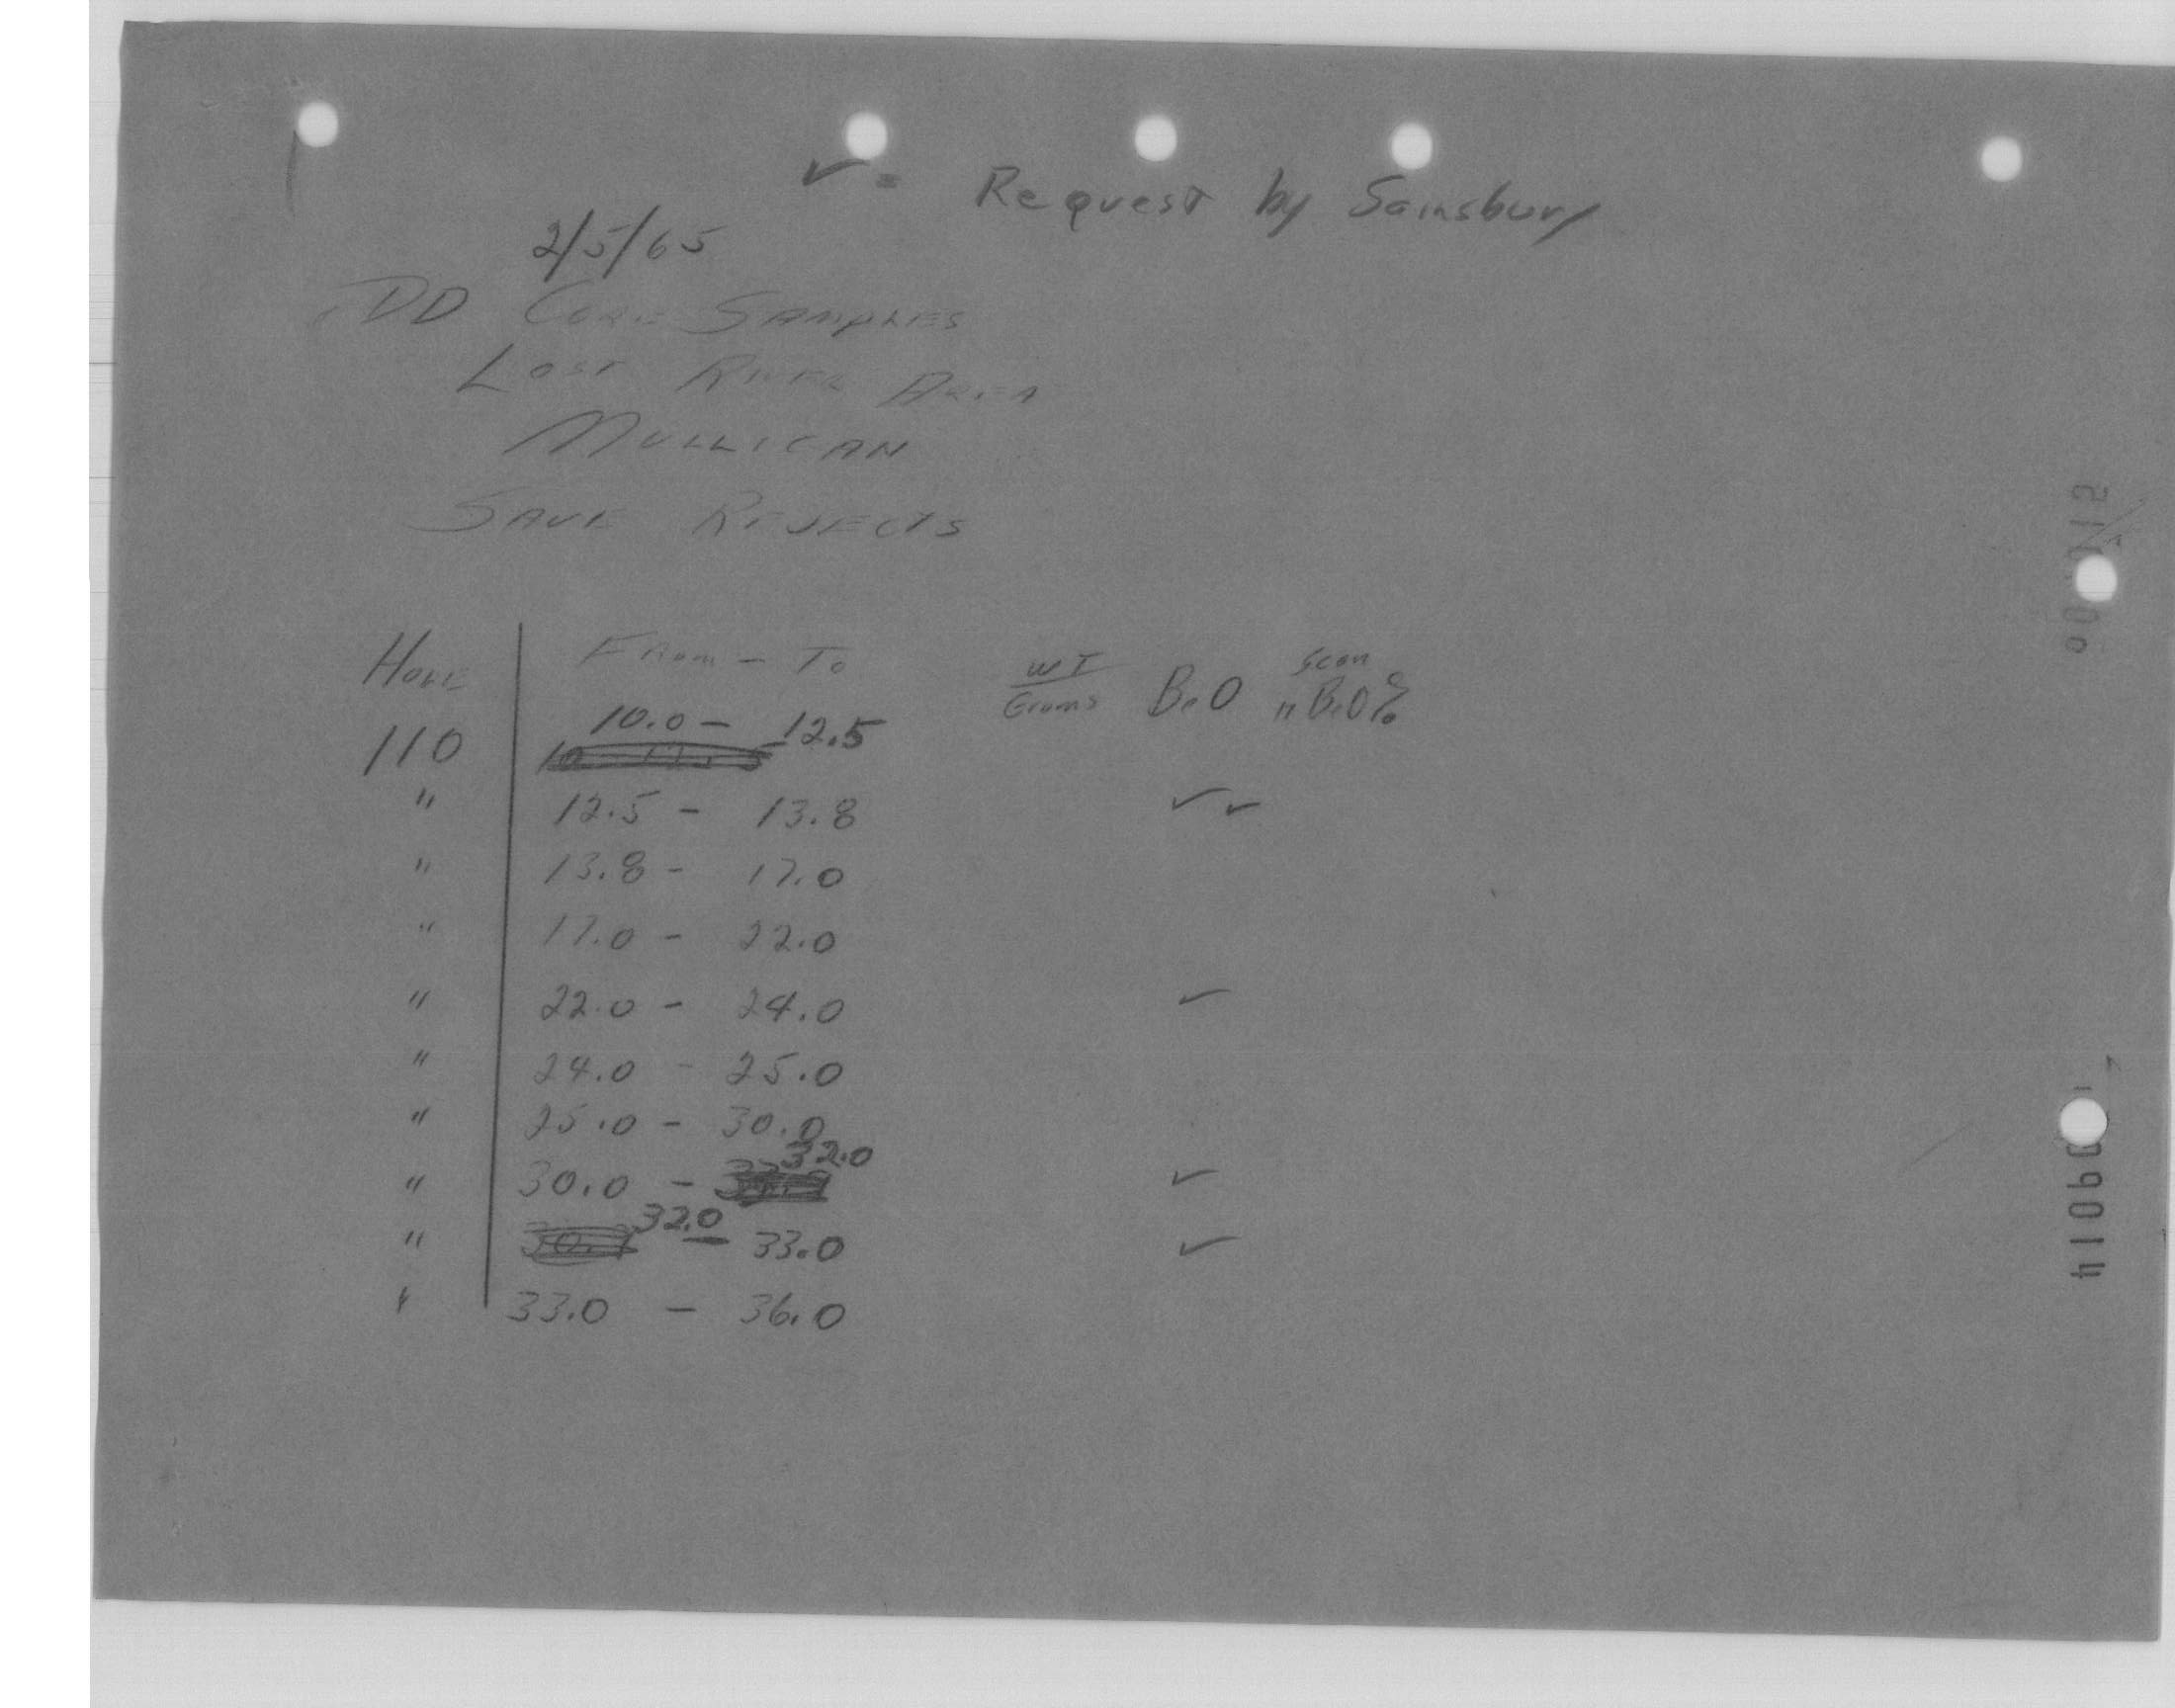 ✓ = Request by Sainsbury
2/5/65
DD Core Samples
Lost River Area
Mulligan
Save Rejects
Hole From - To WT Grams BeO Scan "BeO%
110 10.0 - 12.5
" 12.5 - 13.8 ✓✓
" 13.8 - 17.0
" 17.0 - 22.0
" 22.0 - 24.0 ✓
" 24.0 - 25.0
" 25.0 - 30.0
" 30.0 - 32.0 ✓
" 32.0 - 33.0 ✓
" 33.0 - 36.0